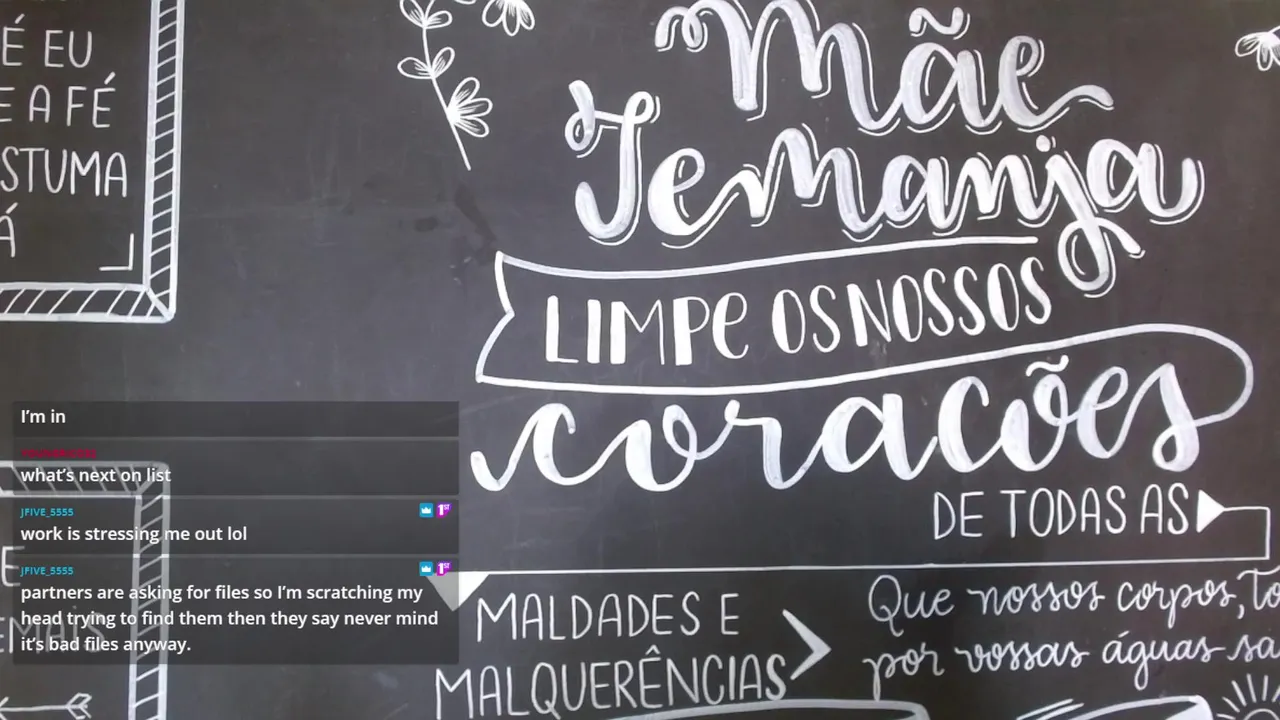 É EU
E A FÉ
STUMA
Á
Mãe
Iemanja
LIMPE OS NOSSOS
coracões
DE TODAS AS
MALDADES E
MALQUERÊNCIAS
Que nossos corpos, to
por vossas águas sa
I'm in
what's next on list
JFIVE_5555
work is stressing me out lol
JFIVE_5555
partners are asking for files so I'm scratching my
head trying to find them then they say never mind
it's bad files anyway.